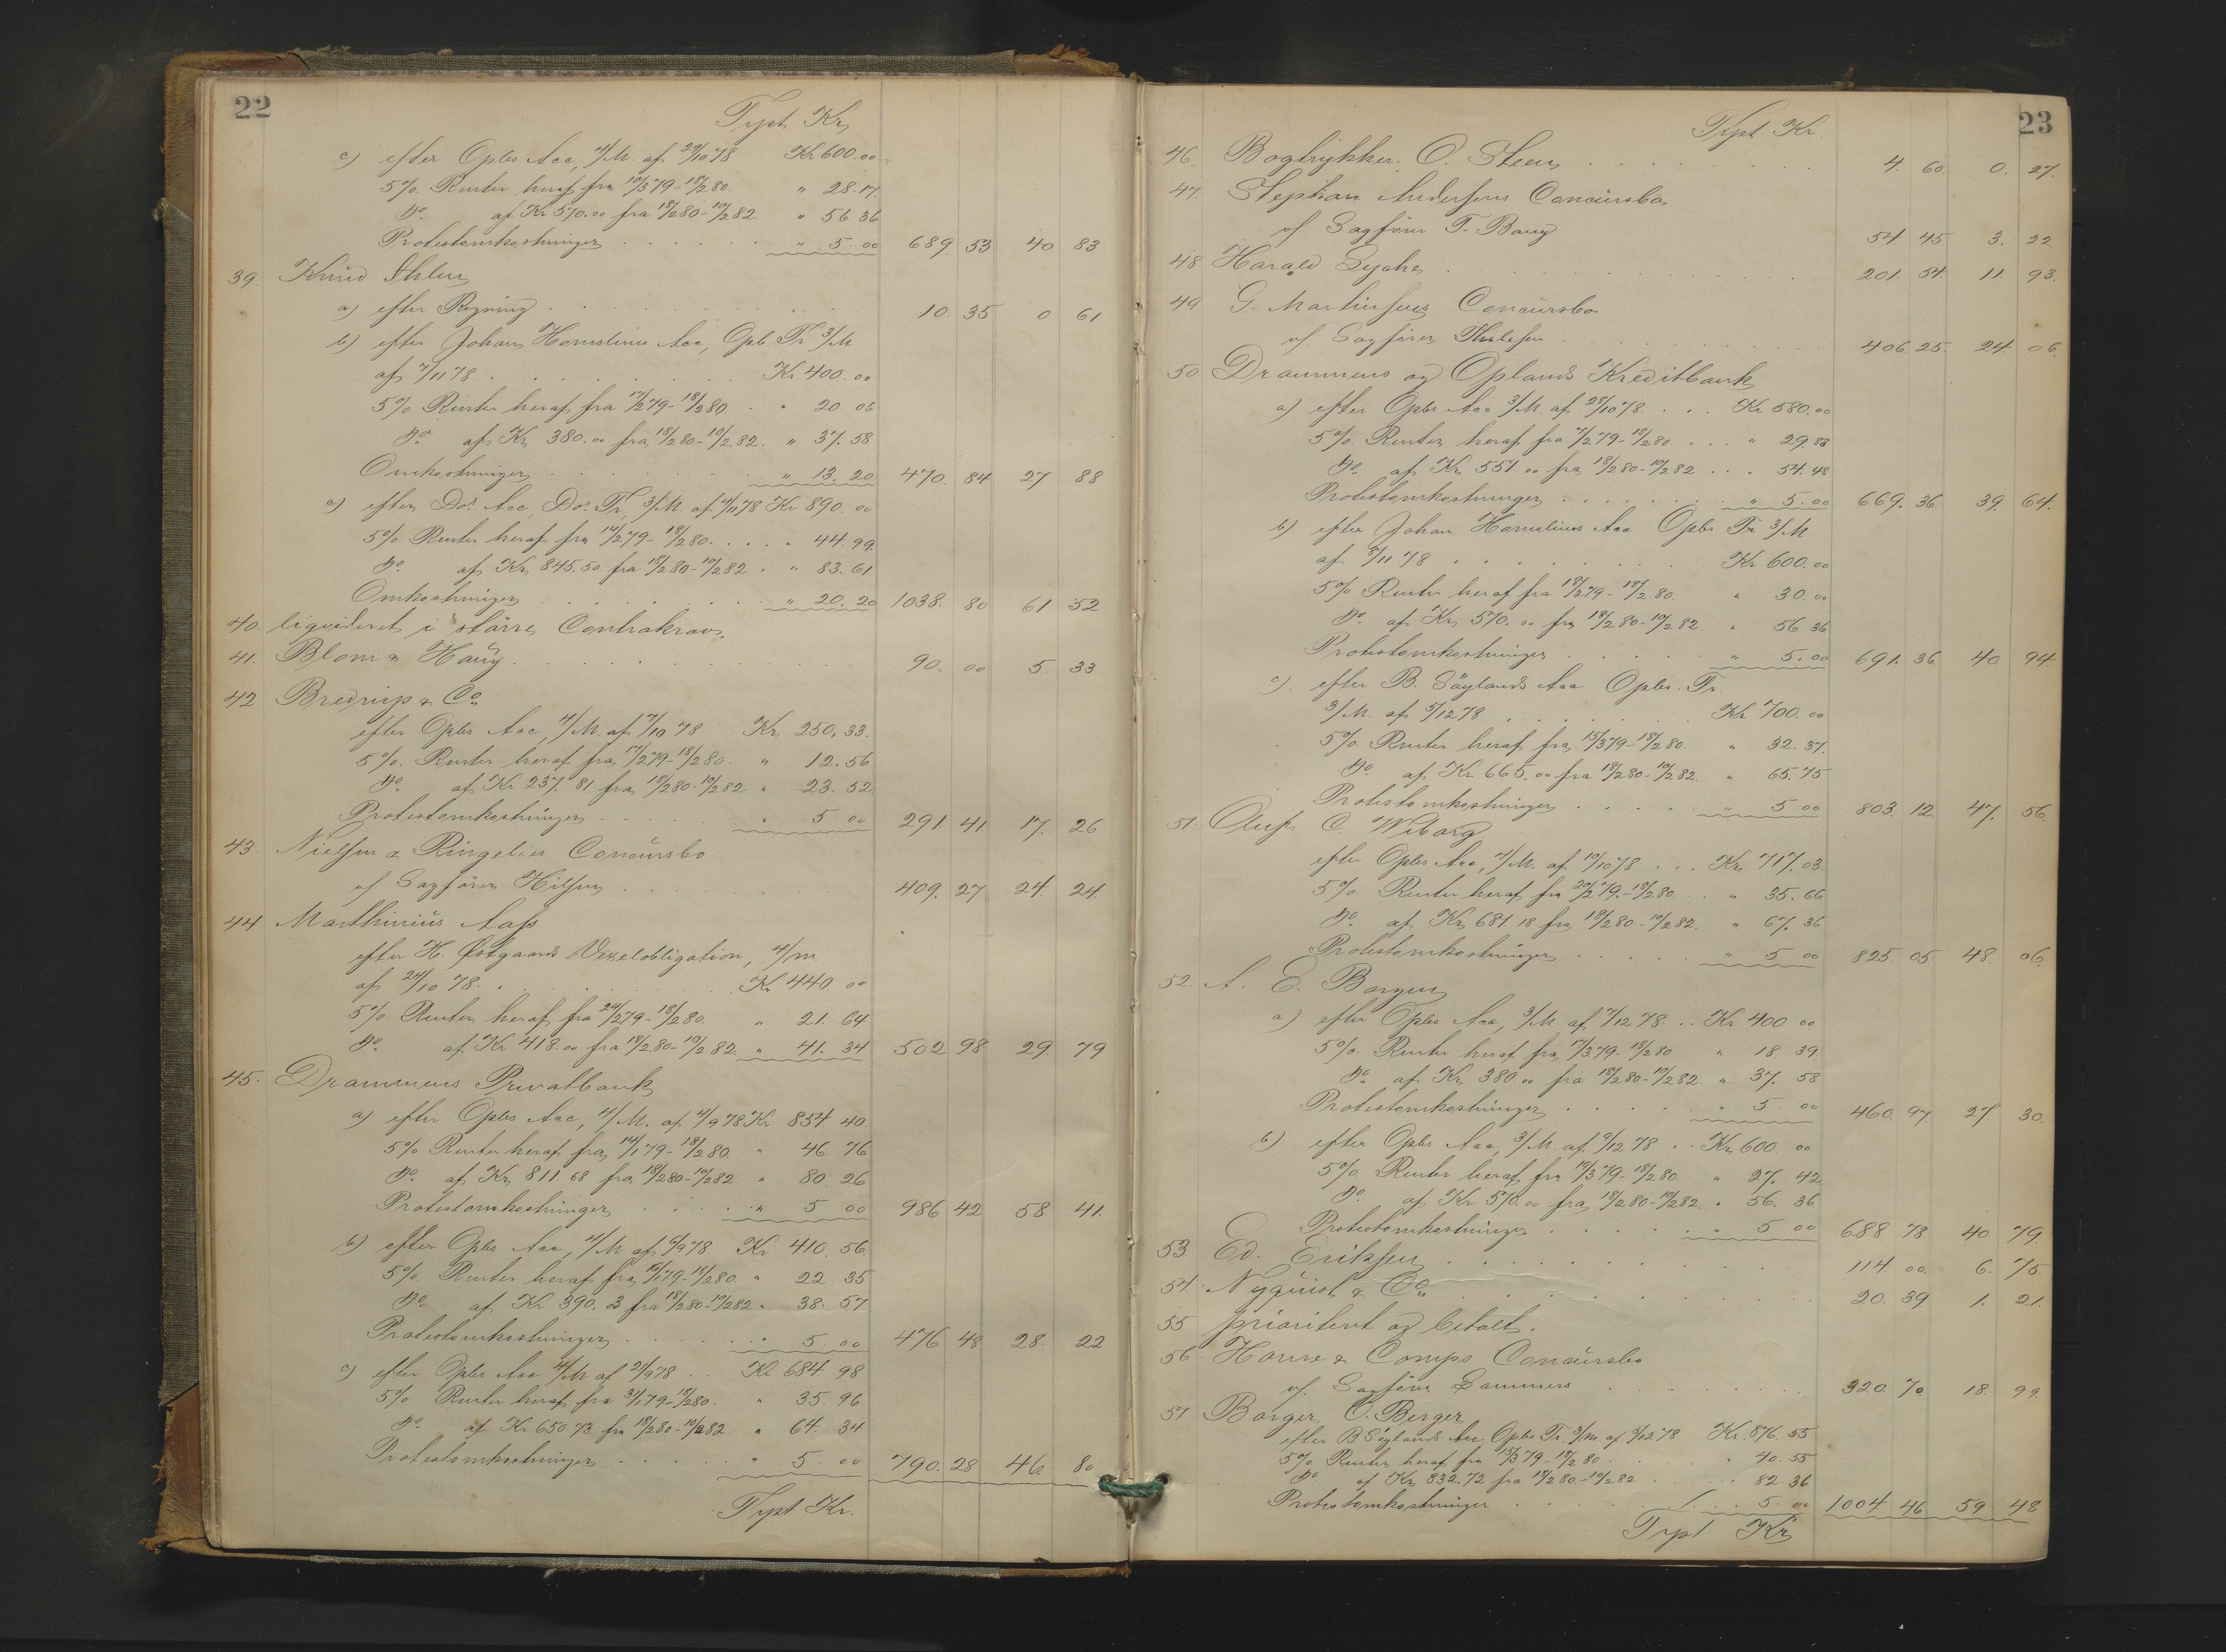 22
Trpt Kr
c) efter Opbs Acc, 4/M. af 29/10 78 Kr 600.00
5% Renter heraf fra 10/3 79-18/2 80 " 28.17
do. af Kr 570.00 fra 18/2 80-10/2 82 " 56.36
Protestomkostninger " 5.00 689 53 40 83
39. Knud
a) efter Regning 10 35 0 61
b) efter Johan Hornslius Acc, Opb. Tr 3/M
af 7/11 78. Kr. 400.00
5% Renter heraf fra 17/2 79-18/2 80 " 20.06
do. af Kr 380.00 fra 18/2 80-10/2 82. " 37.58
Omkostninger " 13.20 470. 84 27 88
c) efter Dos. Acc, Dos. Tr, 3/M. af 4/11 78 Kr 890.00
5% Renter heraf fra 14/2 79-18/2 80. " 44.99
do. af Kr 845.50 fra 18/2 80-10/2 82. " 83.61
Omkostninger " 20.20 1038. 80 61 52
40. liqvideret i større Contrakrav.
41. Blom & Haug 90. 00 5. 33
42 Bredrup & Co
efter Opbs Acc, 4/M. af 7/10 78 Kr 250.33.
5% Renter heraf fra 17/2 79-18/2 80. " 12.56
do. af Kr 237.81 fra 18/2 80-10/2 82 " 23.52
Protestomkostninger " 5.00 291. 41 17. 26
43. Nielsen & Ringelies Concursbo
v/ Sagfører Hilsen 409. 27 24. 24.
44 Marthinius Aass
efter H. Østgaards Vexelobligation, 4/m
af 24/10 78. Kr 440.00
5% Renter heraf fra 24/2 79-18/2 80 " 21.64
do. af Kr 418.00 fra 18/2 80-10/2 82. " 41.34 502 98 29 79
45. Drammens Privatbank
a) efter Opbs Acc, 4/M. af 4/9 78 Kr 854 40
5% Renter heraf fra 14/1 79-18/2 80 " 46. 76
do. af Kr 811 68 fra 18/2 80-10/2 82 " 80. 26
Protestomkostninger " 5 00 986 42 58 41.
b) efter Opbs Acc, 4/M af 6/9 78 Kr 410. 56.
5% Renter heraf fra 16/1 79-18/2 80 " 22. 35
do. af Kr 390. 3 fra 18/2 80-10/2 82 " 38. 57
Protestomkostninger " 5 00 476 48 28. 22
c) efter Opbs Acc 4/M af 21/9 78 Kr 684 98
5% Renter heraf fra 31/1 79-18/2 80. " 35. 96
do. af Kr 650 73 fra 18/2 80-10/2 82 " 64. 34
Protestomkostninger " 5 00 790. 28 46. 80
Trpt Kr.
23
Trpt Kr.
46. Bogtrykker O. Steen 4. 60 0. 27.
47. Stephan Andersens Concursbo
v/ Sagfører T. Bang 54 45 3. 22
48 Harald Lyche 201. 54. 11 93.
49 G. Martinsens Concursbo
v/ Sagfører 406. 25 24. 06.
50. Drammens og Oplands Kreditbank
a) efter Opbs Acc 3/M. af 28/10 78. Kr 580.00
5% Renter heraf fra 7/2 79-18/2 80 " 29.88
do. af Kr 551.00 fra 18/2 80-10/2 82 " 54.48
Protestomkostninger " 5.00 669. 36 39. 64.
b) efter Johan Hornslius Acc Opbs Tr 3/M
af 8/11 78 Kr 600.00
5% Renter heraf fra 18/2 79-18/2 80. " 30.00
do. af Kr 570.00 fra 18/2 80-10/2 82 " 56.36
Protestomkostninger " 5.00 691. 36 40. 94.
c). efter B. Søylands Acc Opbs. Tr.
3/M. af 5/12 78 Kr 700.00
5% Renter heraf fra 15/3 79-18/2 80. " 32.37.
do. af Kr 665.00 fra 18/2 80-10/2 82. " 65.75
Protestomkostninger " 5 00 803. 12. 47. 56.
51. Oluf C. Wiborg
efter Opbs Acc, 4/M. af 19/10 78 Kr 717.03
5% Renter heraf fra 20/2 79-18/2 80 " 35.66
do. af Kr 681.18 fra 18/2 80-10/2 82. " 67.36
Protestomkostninger " 5 00 825. 05 48. 06.
52. A. E. Borgen
a) efter Opbs Acc, 3/M. af 7/12 78. Kr 400 00
5% Renter heraf fra 17/3 79-18/2 80 " 18 39
do. af Kr 380.00 fra 18/2 80-10/2 82 " 37. 58
Protestomkostninger " 5 00 460. 97. 27. 30.
b) efter Opbs Acc, 3/M. af 9/12 78 Kr 600 00
5% Renter heraf fra 19/3 79-18/2 80 " 27. 42
do. af Kr 570.00 fra 18/2 80-10/2 82 " 56. 36
Protestomkostninger " 5 00 688 78 40. 79.
53 Ed. Eriksen 114 00. 6. 75.
54. Nyquist & Co 20. 39. 1. 21.
55 prioriteret og betalt.
56. Howe & Comps Concursbo
v/ Sagfører Lammers 320. 70. 18. 99.
57 Borger O. Berger
efter B Søylands Acc Opbs Tr. 3/m. af 5/12 78 Kr. 876 55
5% Renter heraf fra 15/3 79-18/2 80 " 40.55
do af Kr 832.72 fra 18/2 80-10/2 82 82.36
Protestomkostninger 5.00 1004 46 59 48
Trpt Kr